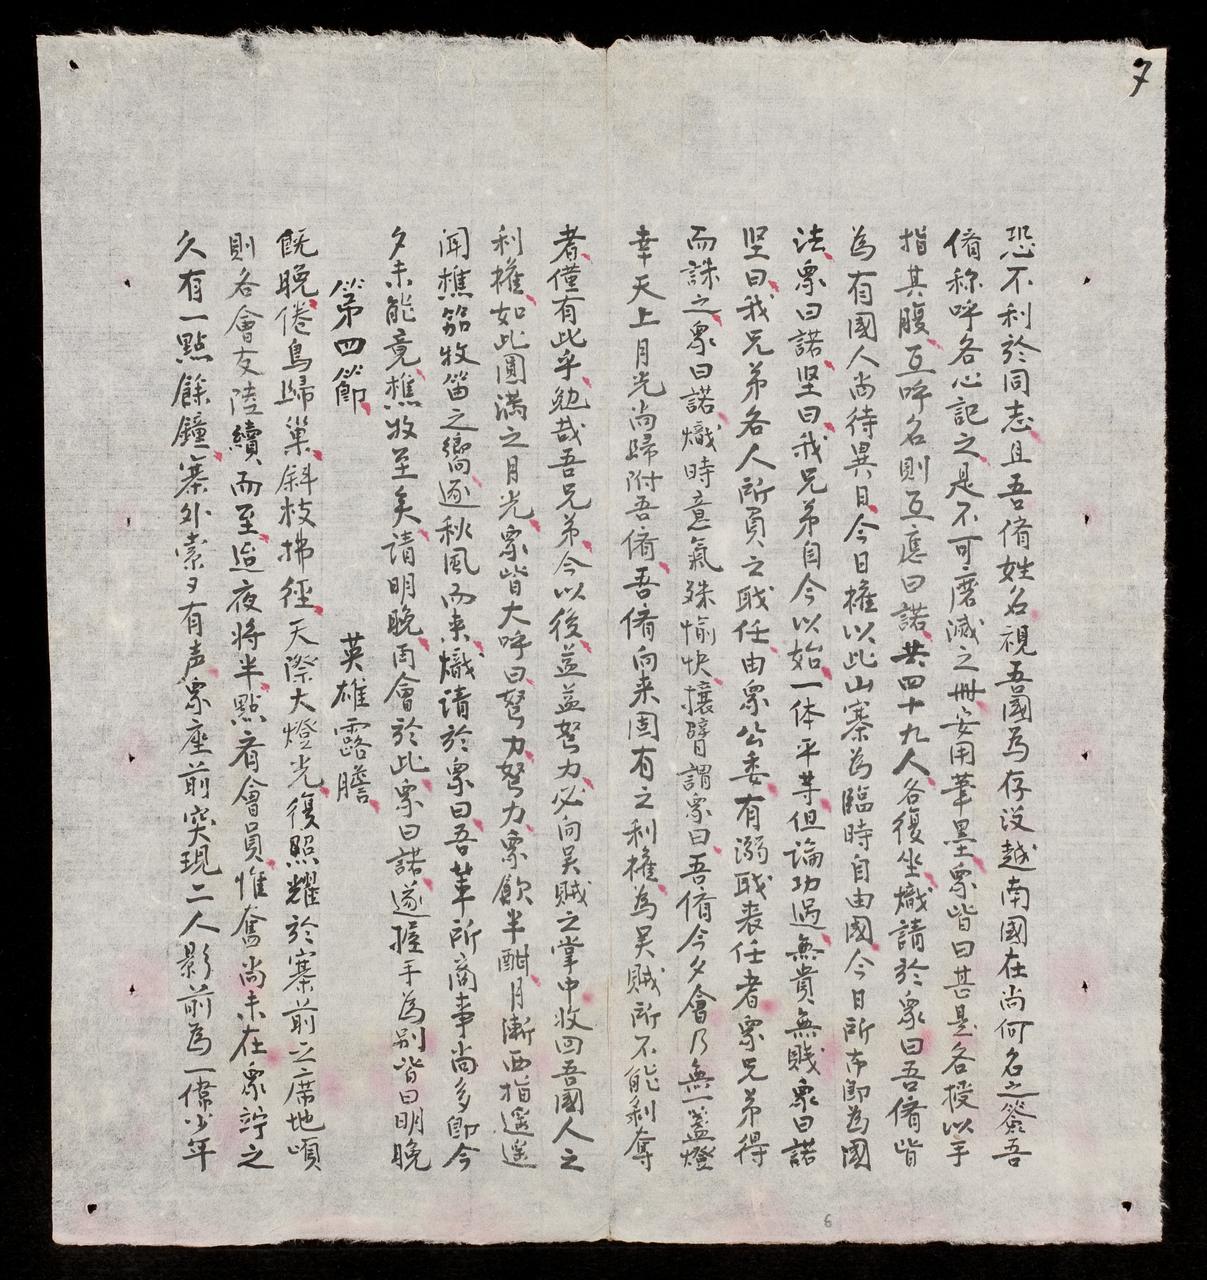 7
恐不利於同志且吾侪姓名視吾國為存没越南國在尚何名之簽吾
侪称呼各心記之是不可磨滅之冊安用筆墨眾皆曰甚是各授以手
指其腹互呼名則互應曰諾共四十九人各復坐熾請於眾曰吾侪皆
為有國人尚待異日今日權以此山寨為臨時自由國今日所布即為國
法眾曰諾坚曰我兄弟自今以始一体平等但論功過無貴無賤眾曰諾
坚曰我兄弟各人所負之職任由眾公委有溺職喪任者眾兄弟得
而誅之眾曰諾熾時意氣殊愉快攘臂謂眾曰吾侪今夕會乃無一盞燈
幸天上月光尚歸附吾侪吾侪向来固有之利權為吴賊所不能剥奪
者僅有此乎勉哉吾兄弟今以後益益努力必向吴賊之掌中收回吾國人之
利權如此圆满之月光眾皆大呼曰努力努力眾飲半酣月漸西指遥遥
闻樵笳牧笛之嚮逐秋風而来熾請於眾曰吾輩所商事尚多即今
夕未能竟樵牧至矣請明晚再會於此眾曰諾遂握手為别皆曰明晚
第四節 英雄露膽
既晚倦鳥歸巢斜枝拂徑天際大燈光復照耀於寨前之席地頃
則各會友陸續而至迨夜将半點看會員惟奮尚未在眾竚之
久有一點餘鐘寨外索夕有声眾座前突現二人影前為一偉少年
6